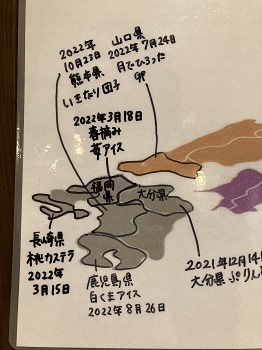 2022年
10月23日
熊本県
いきなり団子
山口県
2022年7月24日
月でひろった
卵
2022年3月18日
春摘み
苺アイス
福岡
県
大分県
長崎県
桃カステラ
2022年
3月15日
鹿児島県
白くまアイス
2022年8月26日
2021年12月14
大分県 ぷりん